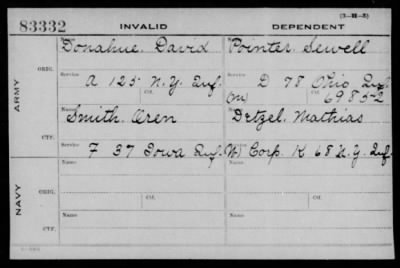 (3-H-3)
83332 INVALID DEPENDENT
ARMY
ORIG.
Name Donahue. David Pointer. Sewell
Service A 125 N.Y. Inf. Service D 78 Ohio Inf.
(m) Ctf. 69852
CTF.
Name Smith. Oren Name Detzel. Mathias
Service F 37 Iowa Inf. (W) Corp. K 68 N.Y. Inf.
NAVY
ORIG.
Name Name
Ctf. Ctf.
Service Service
CTF.
Name Name
Service Service